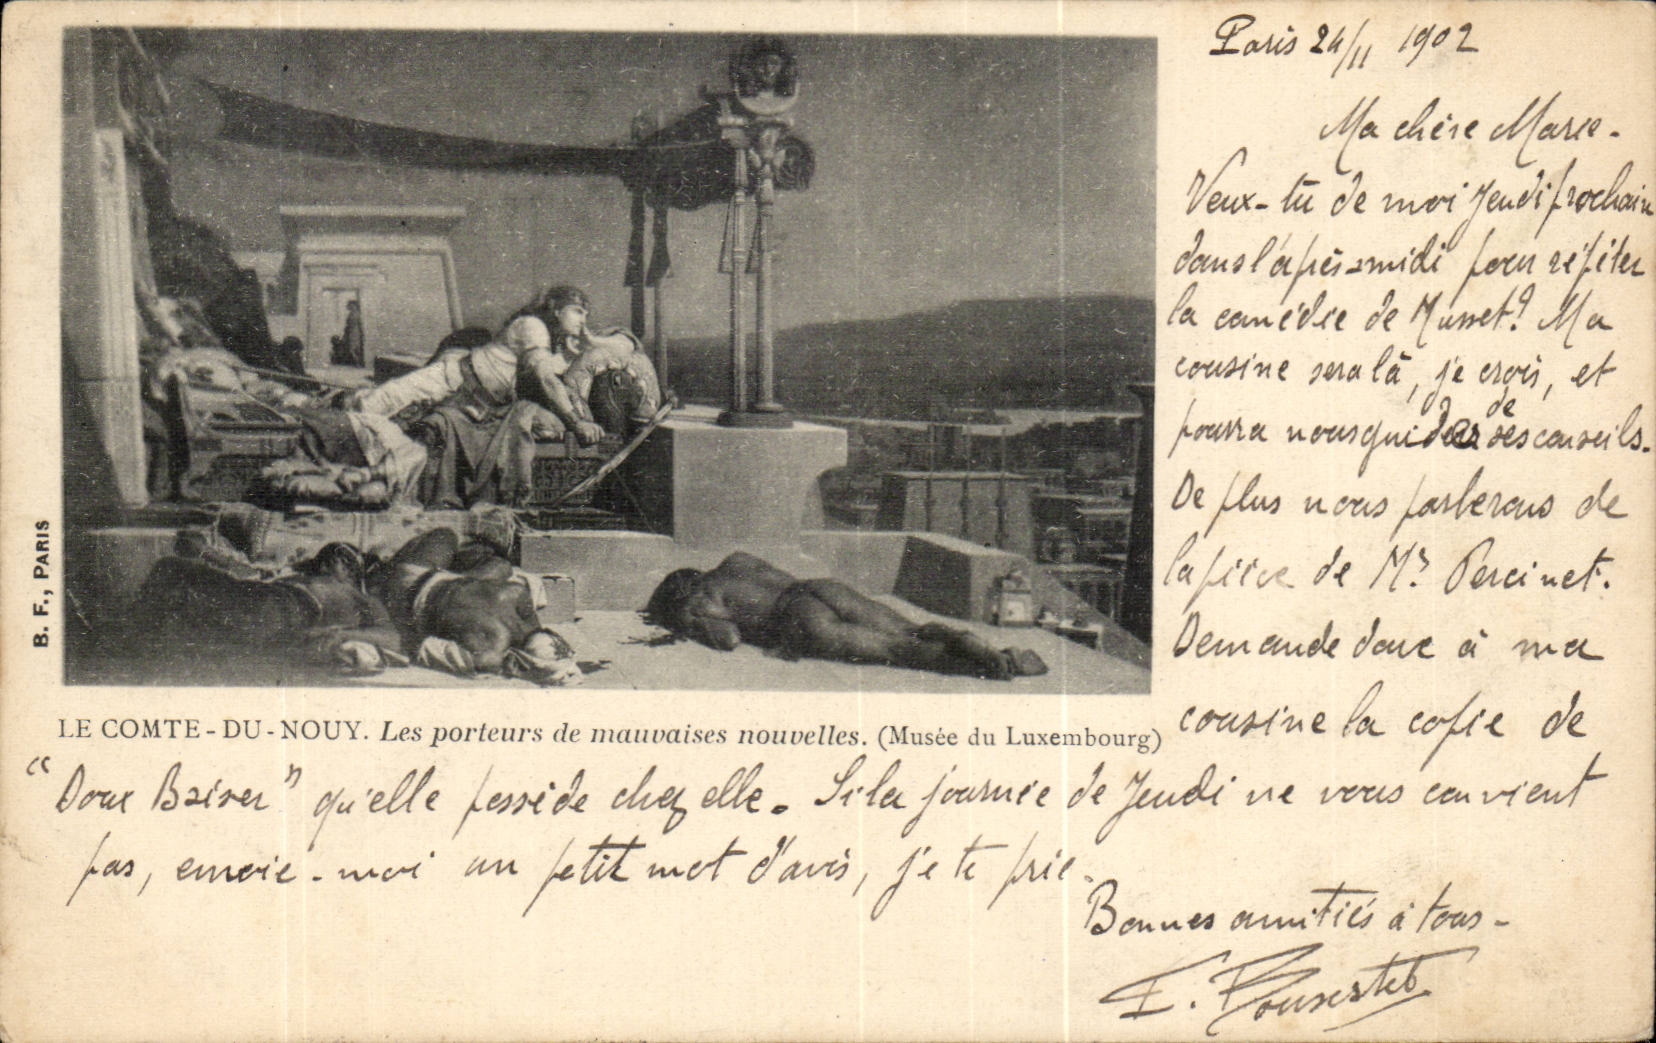 Paris 24/11 1902
Ma chère Marie -
Veux-tu de moi Jeudi prochain
dans l'après-midi pour répéter
la comédie de Musset? Ma
cousine sera là, je crois, et
pourra nous guider de ses conseils.
De plus nous parlerons de
la pièce de Mr Percinet.
Demande donc à ma
cousine la copie de
"Doux Baiser" qu'elle possède chez elle. Si la journée de Jeudi ne vous convient
pas, envoie-moi un petit mot d'avis, je te prie.
Bonnes amitiés à tous -
B. F., PARIS
LE COMTE-DU-NOUY. Les porteurs de mauvaises nouvelles. (Musée du Luxembourg)